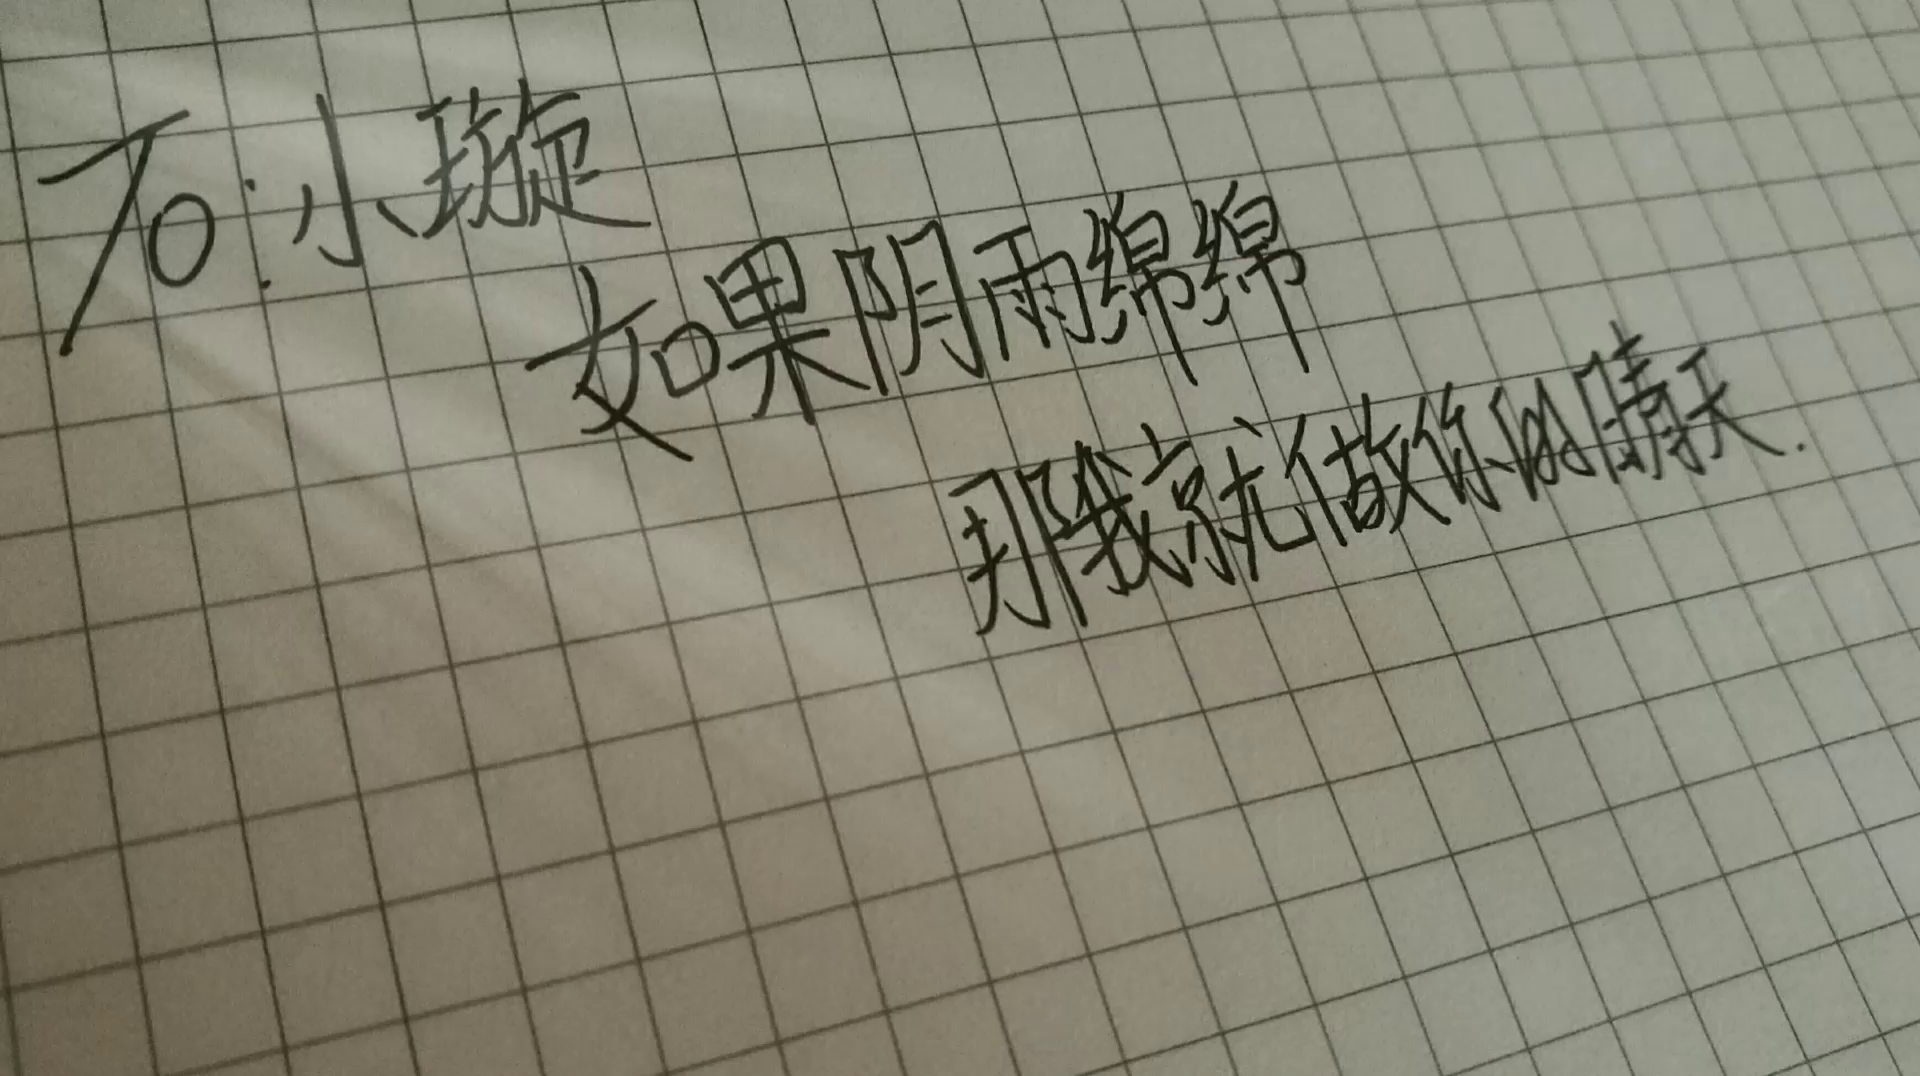 To:小璇
如果阴雨绵绵
那我就做你的晴天.